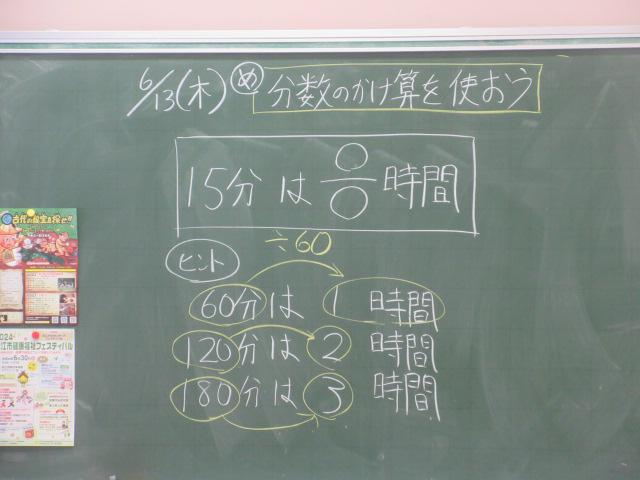 6/13(木) め 分数のかけ算を使おう
15分は ○/○ 時間
÷60
ヒント
60分は 1 時間
120分は 2 時間
180分は 3 時間
2024
江市健康福祉フェスティバル